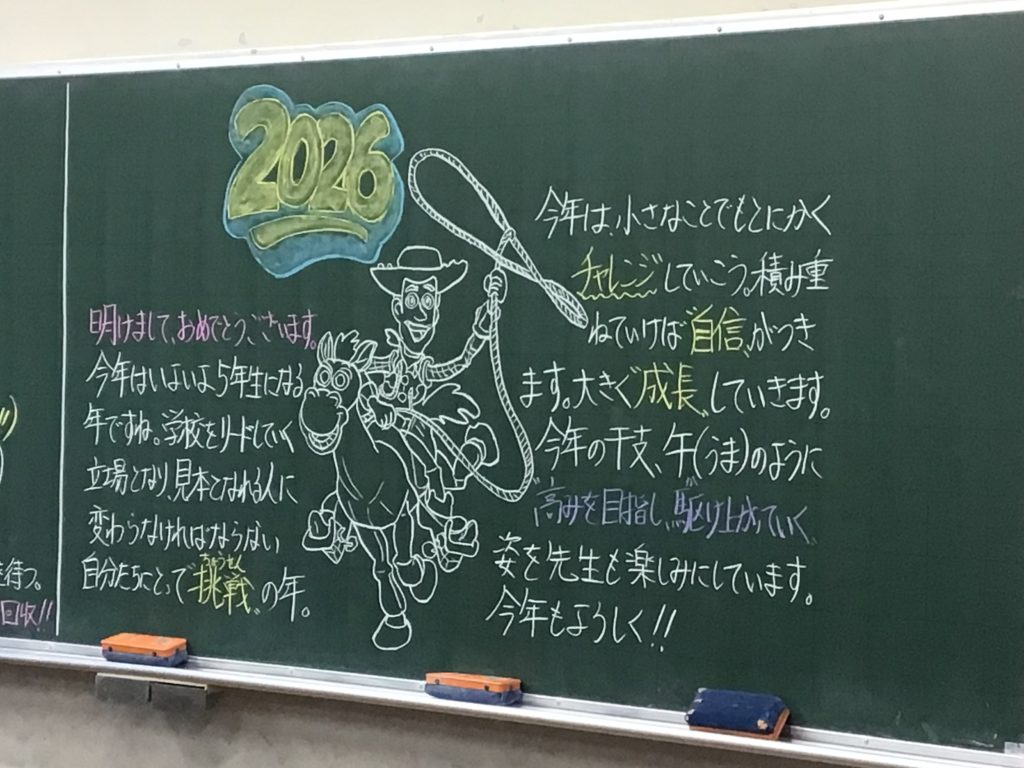 2026
明けまして、おめでとうございます。
今年はいよいよ5年生になる
年ですね。学校をリードしていく
立場となり、見本となれる人に
変わらなければならない
自分たちにとって"挑戦"の年。
ちょうせん
今年は、小さなことでもとにかく
チャレンジしていこう。積み重
ねていけば"自信"がつき
ます。大きく"成長"していきます。
今年の干支、午(うま)のように
"高みを目指し、駆け上がっていく"
か
姿を先生も楽しみにしています。
今年もよろしく!!
を待つ。
回収!!